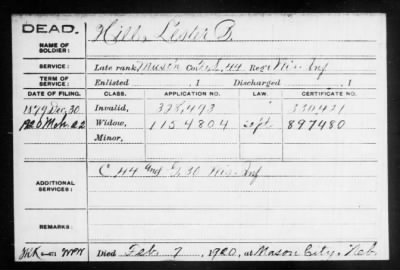 DEAD.
NAME OF SOLDIER: Hill, Lester B.
SERVICE: Late rank, Muscn Co. 44 Reg't Wis. Inf
TERM OF SERVICE: Enlisted I Discharged I
DATE OF FILING. CLASS. APPLICATION NO. LAW. CERTIFICATE NO.
1879 Dec. 30 Invalid, 328,493 330421
1920 Mch. 22 Widow, 1154804 897480
Minor,
ADDITIONAL SERVICES: C 44 and 30 Wis. Inf
REMARKS:
Died Feb 7, 1920, at Mason City, Neb.